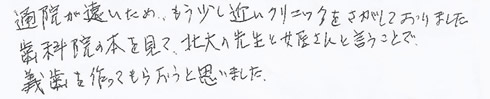 通院が遠いため、もう少し近いクリニックをさがしておりました
歯科院の本を見て、北大の先生と女医さんと言うことで
義歯を作ってもらおうと思いました。